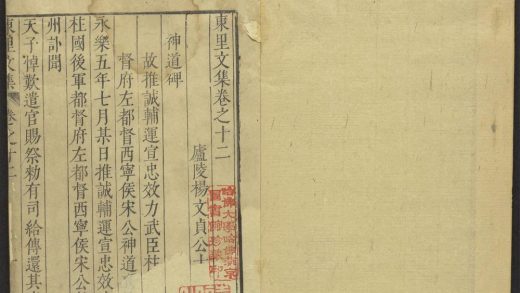 東里文集卷之十二
廬陵楊文貞公
神道碑
故推誠輔運宣忠效力武臣柱
督府左都督西寧侯宋公神道
永樂五年七月某日推誠輔運宣忠效
柱國後軍都督府左都督西寧侯宋公
州訃聞
天子悼歎遣官賜祭勑有司給傳還其
東里文集 卷之十二
哈佛大學哈佛燕京
圖書館珍藏印